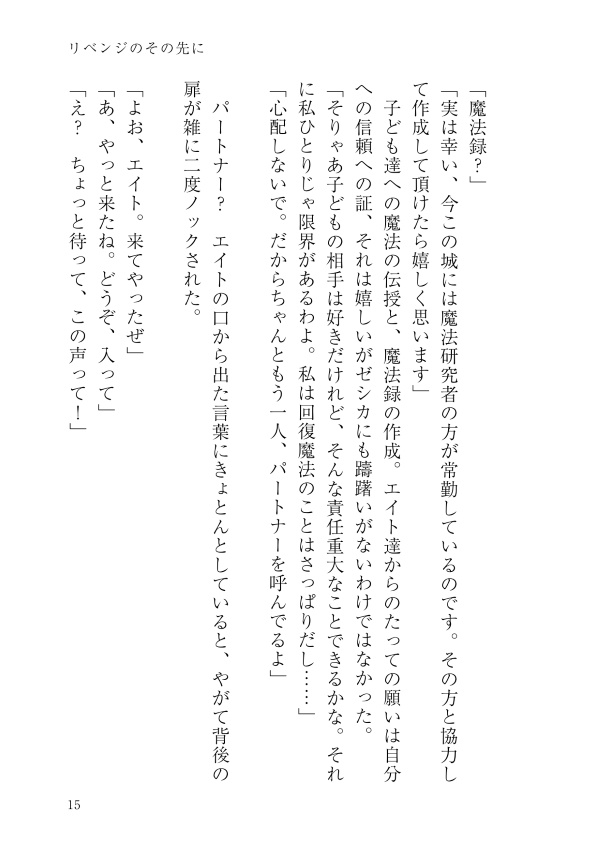 リベンジのその先に
「魔法録？」
「実は幸い、今この城には魔法研究者の方が常勤しているのです。その方と協力し
て作成して頂けたら嬉しく思います」
　子ども達への魔法の伝授と、魔法録の作成。エイト達からのたっての願いは自分
への信頼への証、それは嬉しいがゼシカにも躊躇いがないわけではなかった。
「そりゃあ子どもの相手は好きだけれど、そんな責任重大なことできるかな。それ
に私ひとりじゃ限界があるわよ。私は回復魔法のことはさっぱりだし……」
「心配しないで。だからちゃんともう一人、パートナーを呼んでるよ」
　パートナー？　エイトの口から出た言葉にきょとんとしていると、やがて背後の
扉が雑に二度ノックされた。
「よお、エイト。来てやったぜ」
「あ、やっと来たね。どうぞ、入って」
「え？　ちょっと待って、この声って！」
15